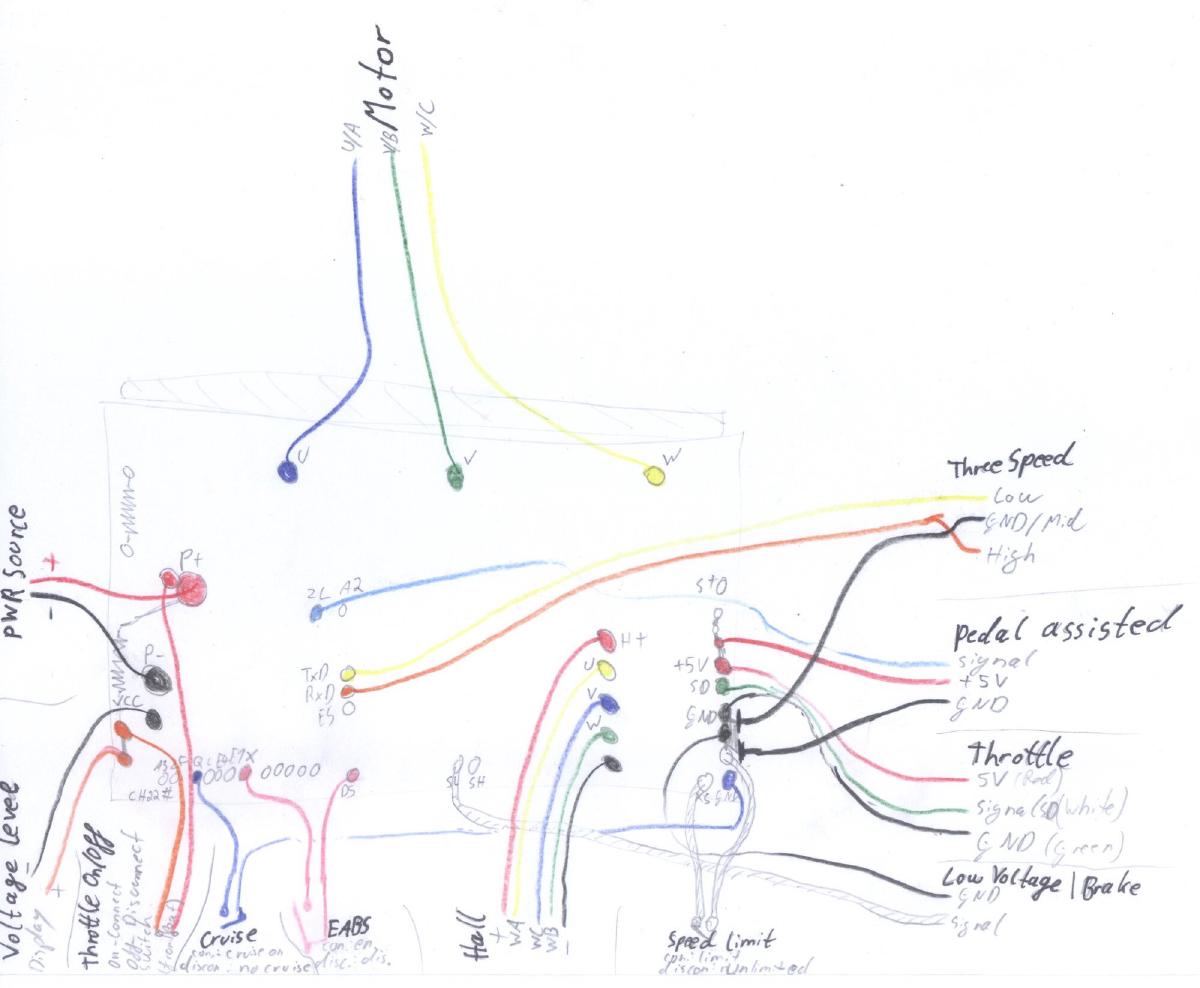 Motor
U/A
V/B
W/C
U
V
W
PWR Source
+
-
P+
P-
2L A2
TxD
RxD
ES
H+
U
V
W
+5V
SD
GND
Three Speed
Low
GND/Mid
High
Pedal assisted
signal
+5V
GND
Throttle
5V (Red)
Signal SD (white)
GND (Green)
Low Voltage | Brake
GND
Signal
Voltage level
Display
-
+
Throttle On/off
On-Connect
Off-Disconnect
Switch
CH22#
Cruise
con: cruise on
discon: no cruise
DS
EABS
con: en.
disc: dis.
SH
Hall
+
WA
WC
WB
-
XS GND
Speed limit
con: limit
discon: unlimited